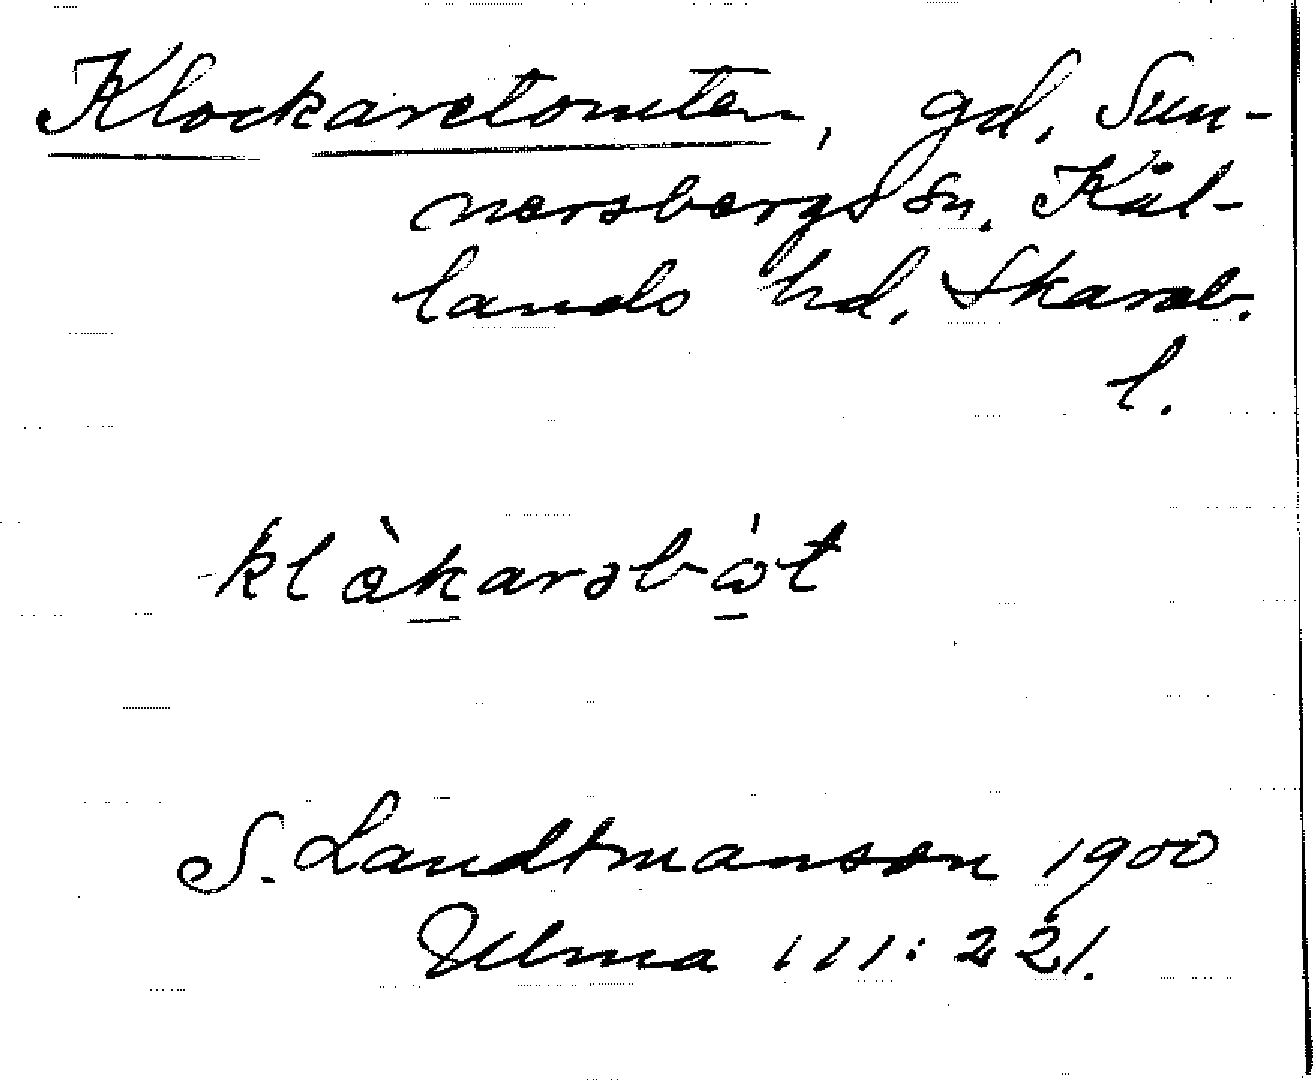 Klockaretomten, gd, Sun-
nersbergs sn. Kål-
lands hd. Skarab.
l.
klåkarsbot
S. Landtmanson 1900
Ulma 111:221.